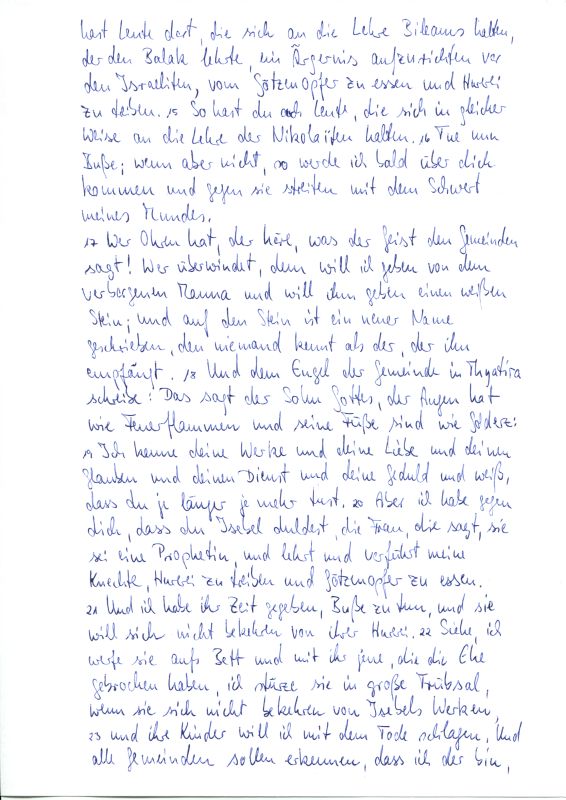 hast Leute dort, die sich an die Lehre Bileams halten,
der den Balak lehrte, ein Ärgernis aufzurichten vor
den Israeliten, vom Götzenopfer zu essen und Hurerei
zu treiben. 15 So hast du auch Leute, die sich in gleicher
Weise an die Lehre der Nikolaïten halten. 16 Tue nun
Buße; wenn aber nicht, so werde ich bald über dich
kommen und gegen sie streiten mit dem Schwert
meines Mundes.
17 Wer Ohren hat, der höre, was der Geist den Gemeinden
sagt! Wer überwindet, dem will ich geben von dem
verborgenen Manna und will ihm geben einen weißen
Stein; und auf den Stein ist ein neuer Name
geschrieben, den niemand kennt als der, der ihn
empfängt. 18 Und dem Engel der Gemeinde in Thyatira
schreibe: Das sagt der Sohn Gottes, der Augen hat
wie Feuerflammen und seine Füße sind wie Golderz:
19 Ich kenne deine Werke und deine Liebe und deinen
Glauben und deinen Dienst und deine Geduld und weiß,
dass du je länger je mehr tust. 20 Aber ich habe gegen
dich, dass du Isebel duldest, die Frau, die sagt, sie
sei eine Prophetin, und lehrt und verführt meine
Knechte, Hurerei zu treiben und Götzenopfer zu essen.
21 Und ich habe ihr Zeit gegeben, Buße zu tun, und sie
will sich nicht bekehren von ihrer Hurerei. 22 Siehe, ich
werfe sie aufs Bett und mit ihr jene, die die Ehe
gebrochen haben, ich stürze sie in große Trübsal,
wenn sie sich nicht bekehren von Isebels Werken,
23 und ihre Kinder will ich mit dem Tode schlagen. Und
alle Gemeinden sollen erkennen, dass ich der bin,